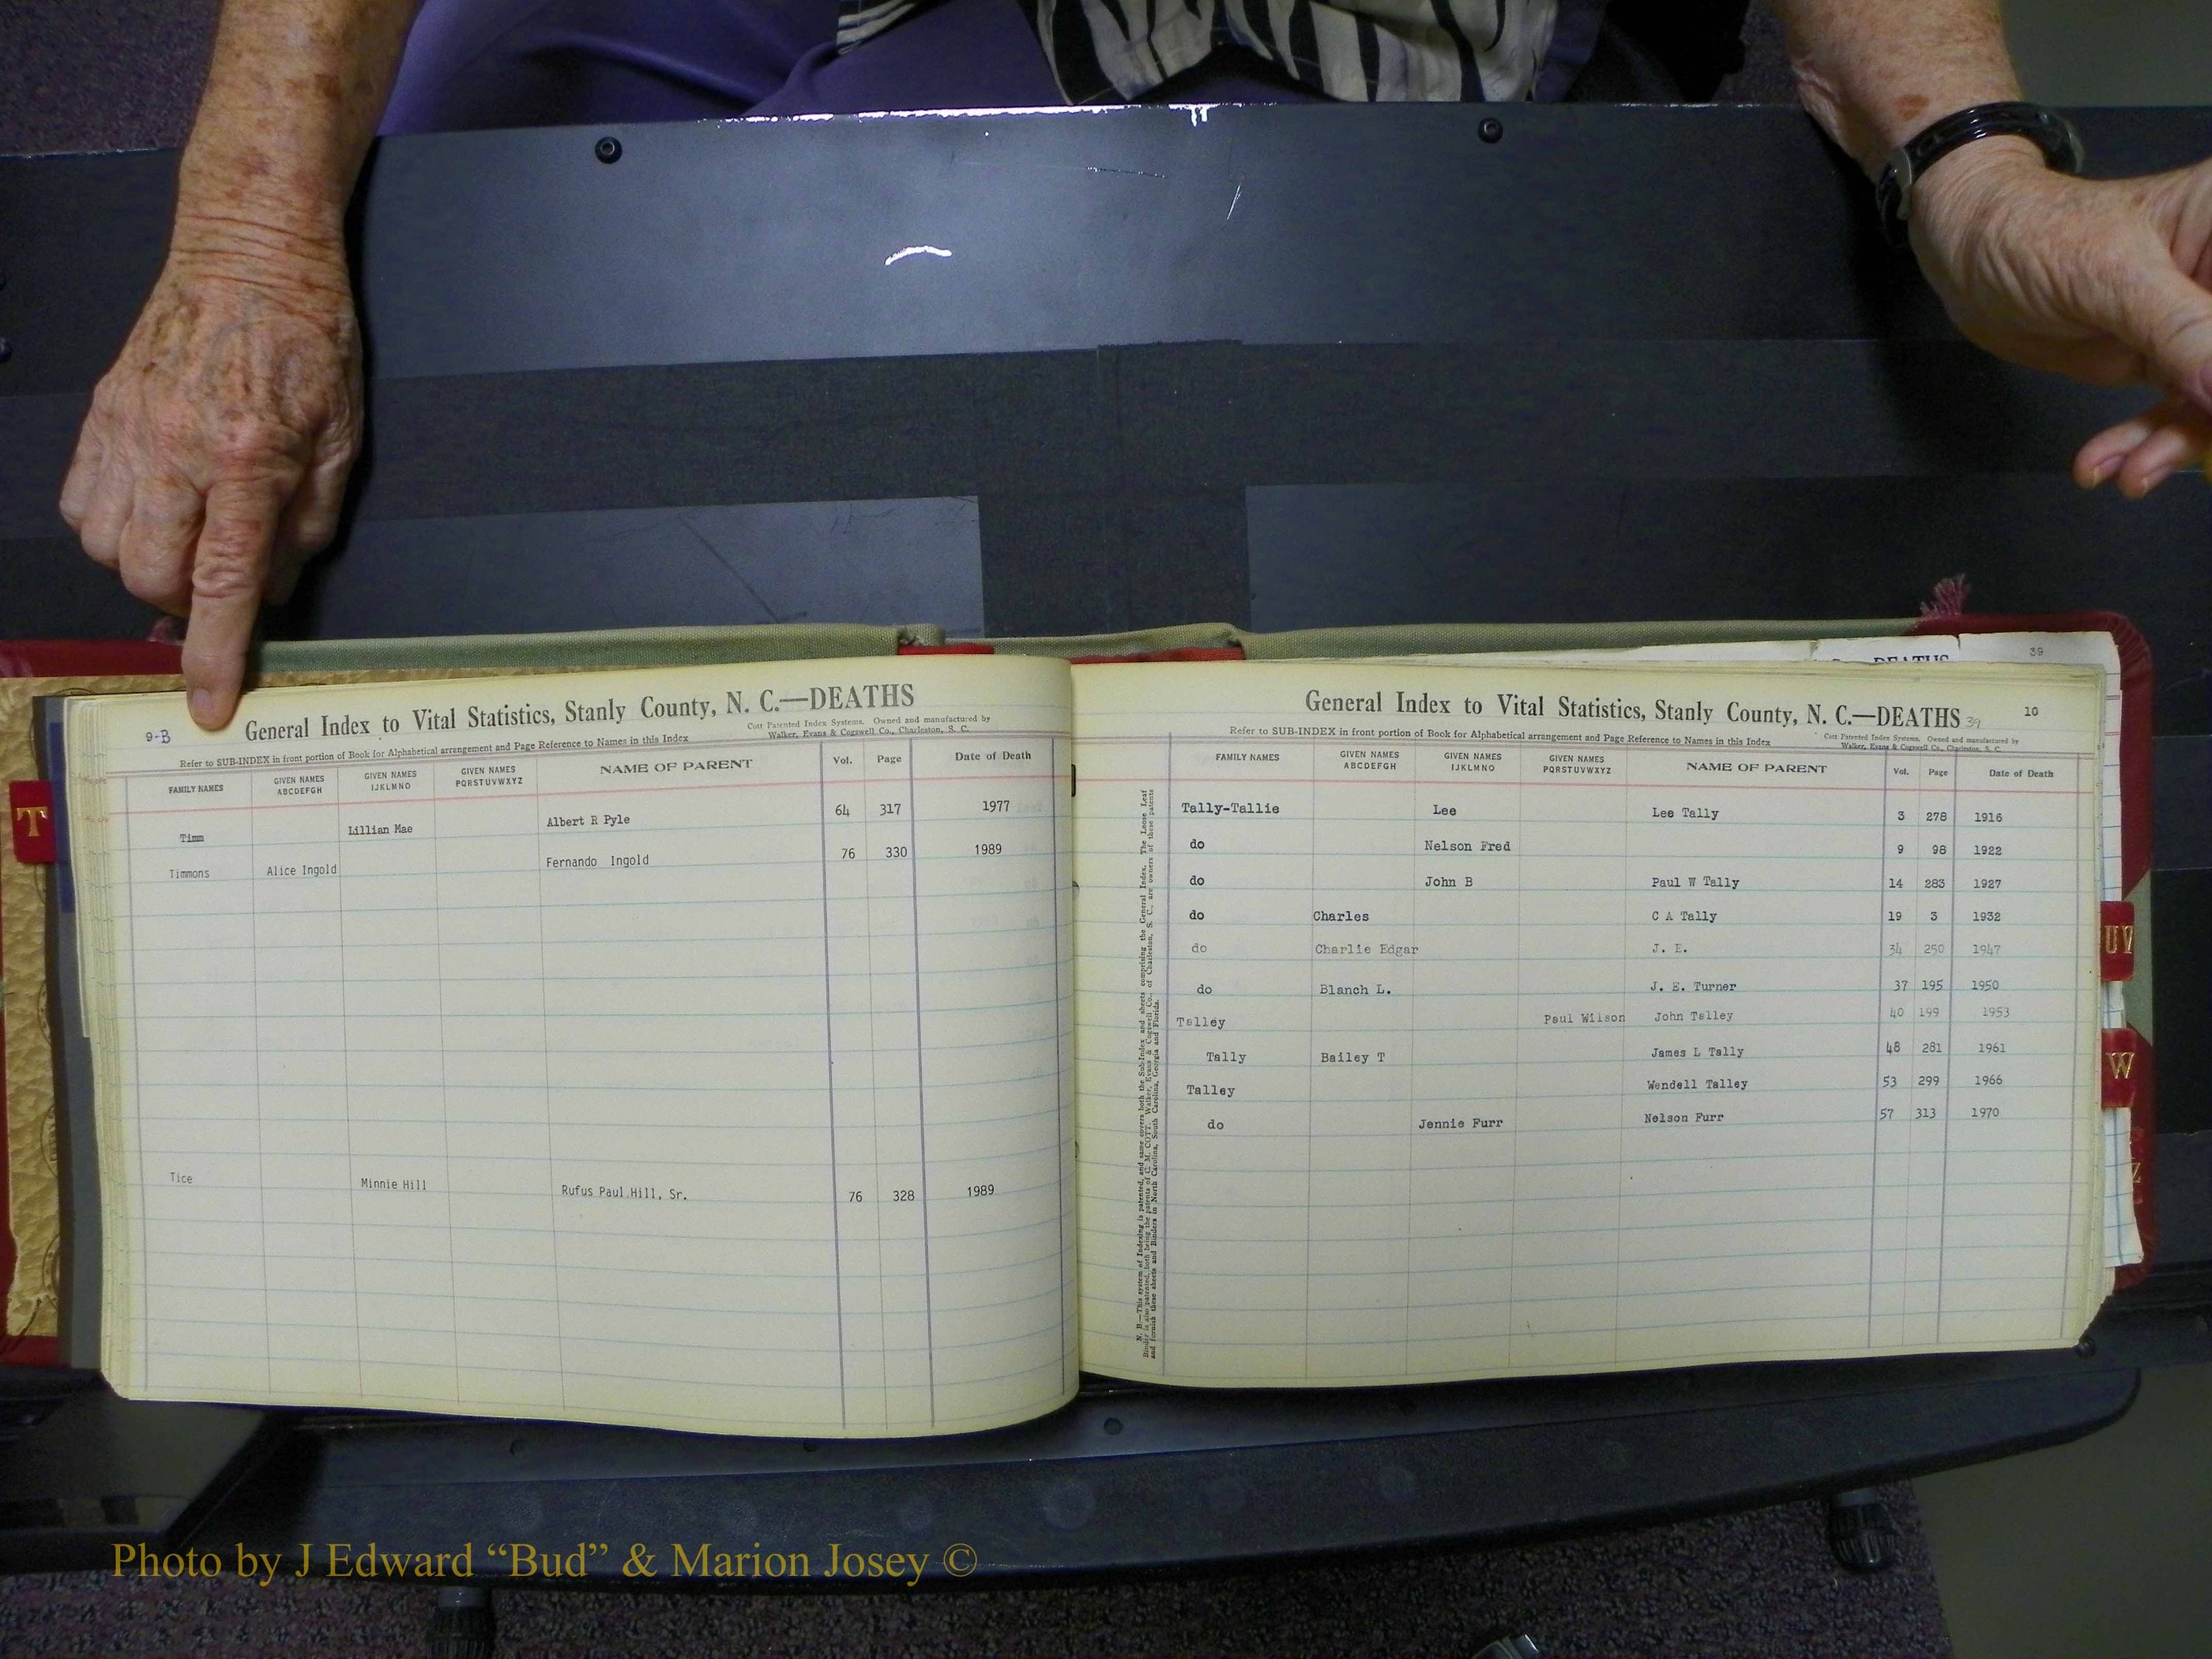 T
9-B
General Index to Vital Statistics, Stanly County, N. C.—DEATHS
Cott Patented Index Systems. Owned and manufactured by
Walker, Evans & Cogswell Co., Charleston, S. C.
Refer to SUB-INDEX in front portion of Book for Alphabetical arrangement and Page Reference to Names in this Index
FAMILY NAMES GIVEN NAMES ABCDEFGH GIVEN NAMES IJKLMNO GIVEN NAMES PQRSTUVWXYZ NAME OF PARENT Vol. Page Date of Death
Timm Lillian Mae Albert R Pyle 64 317 1977
Timmons Alice Ingold Fernando Ingold 76 330 1989
Tice Minnie Hill Rufus Paul Hill, Sr. 76 328 1989
39
DEATHS
General Index to Vital Statistics, Stanly County, N. C.—DEATHS 39
10
Cott Patented Index Systems. Owned and manufactured by
Walker, Evans & Cogswell Co., Charleston, S. C.
Refer to SUB-INDEX in front portion of Book for Alphabetical arrangement and Page Reference to Names in this Index
FAMILY NAMES GIVEN NAMES ABCDEFGH GIVEN NAMES IJKLMNO GIVEN NAMES PQRSTUVWXYZ NAME OF PARENT Vol. Page Date of Death
Tally-Tallie Lee Lee Tally 3 278 1916
do Nelson Fred 9 98 1922
do John B Paul W Tally 14 283 1927
do Charles C A Tally 19 3 1932
do Charlie Edgar J. E. 34 250 1947
do Blanch L. J. E. Turner 37 195 1950
Talley Paul Wilson John Talley 40 199 1953
Tally Bailey T James L Tally 48 281 1961
Talley Wendell Talley 53 299 1966
do Jennie Furr Nelson Furr 57 313 1970
N. B.—This system of Indexing is patented, and same covers both the Sub-Index and sheets comprising the General Index. The Loose Leaf
Binder is also patented, both being the patents of C. M. COTT. Walker, Evans & Cogswell Co., of Charleston, S. C., are owners of these patents
and furnish these sheets and Binders in North Carolina, South Carolina, Georgia and Florida.
UV
W
Z
Photo by J Edward “Bud” & Marion Josey ©